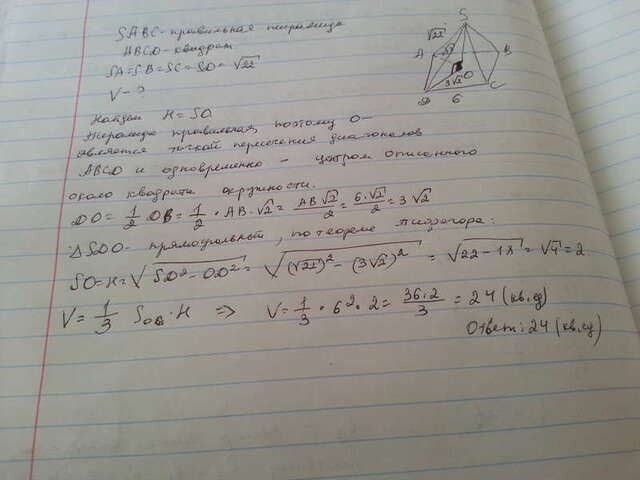 SABC - правильная пирамида
ABCD - квадрат
SA=SB=SC=SD=√22
V - ?
Найдем H = SO
Пирамида правильная, поэтому O -
является точкой пересечения диагоналей
ABCD и одновременно - центром описанного
около квадрата окружности.
DO = 1/2 DB = 1/2 · AB · √2 = AB√2/2 = 6·√2/2 = 3√2
△SDO - прямоугольный, по теореме Пифагора:
SO = H = √(SD² - OD²) = √((√22)² - (3√2)²) = √(22 - 18) = √4 = 2
V = 1/3 Sосн · H ⇒ V = 1/3 · 6² · 2 = 36·2/3 = 24 (кв.ед)
Ответ: 24 (кв.ед)
S
√22
A
B
O
3√2
D
6
C